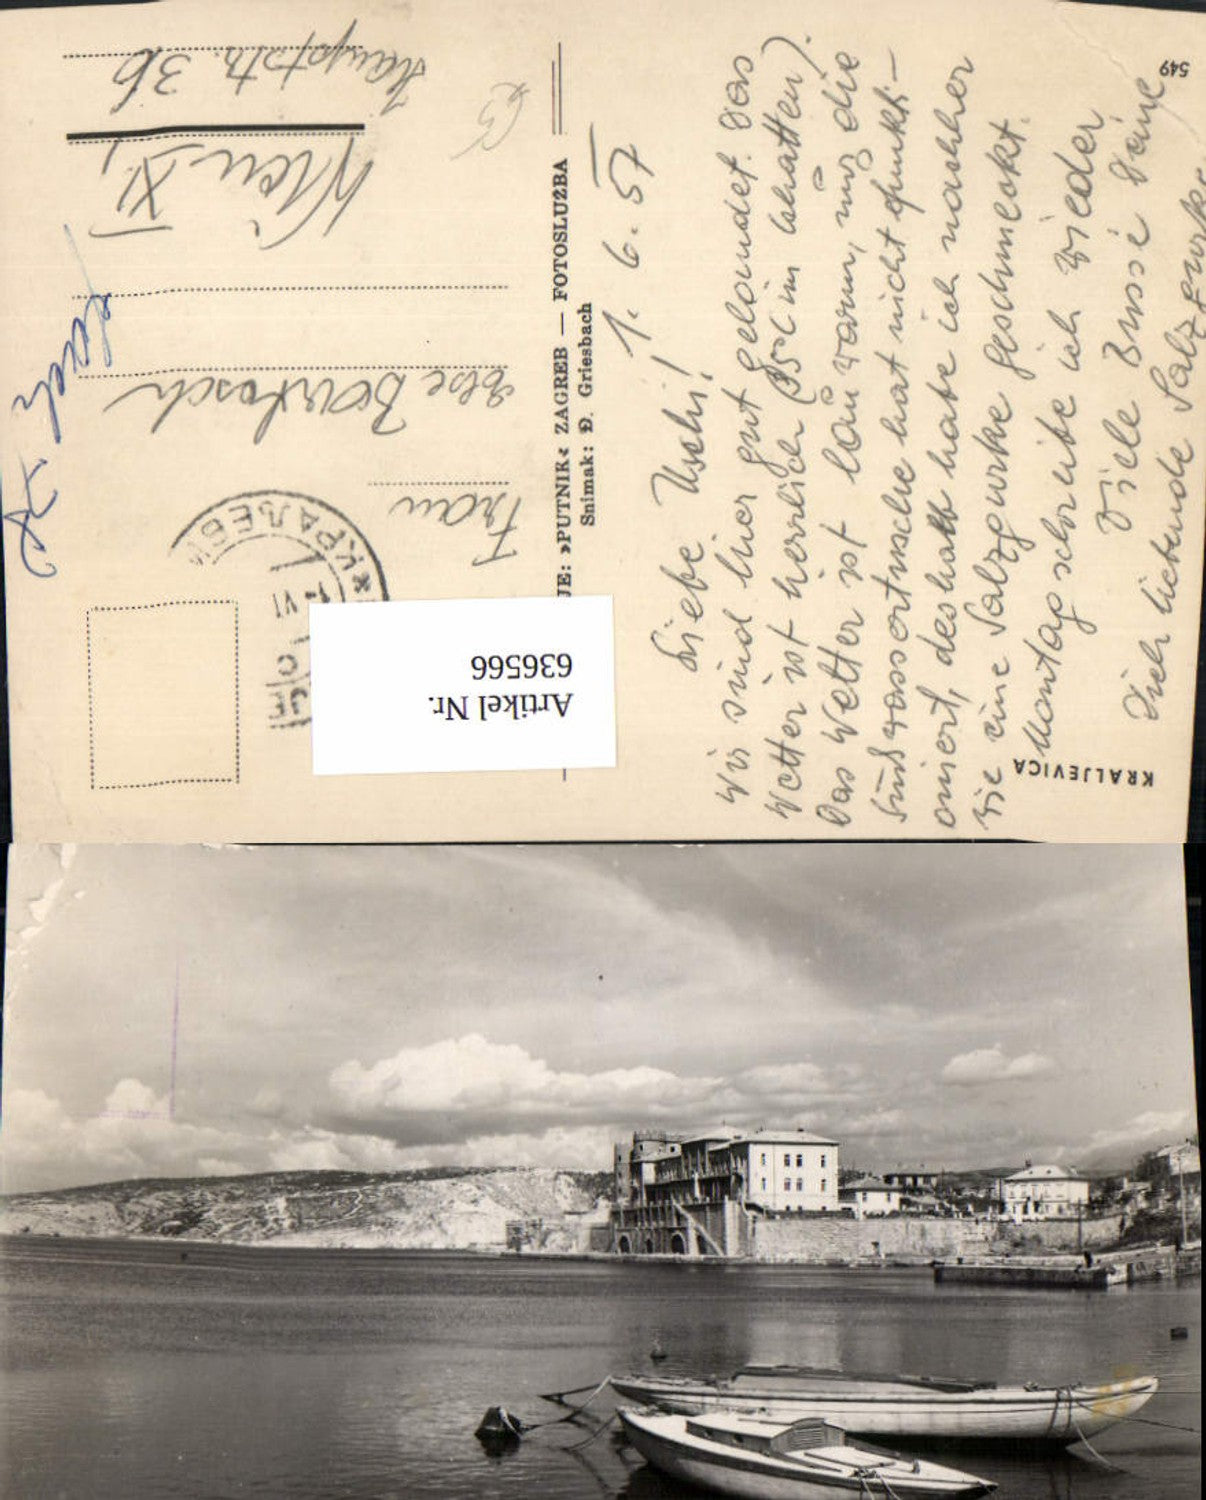 KRALJEVICA
549
1. 6. 57
Liebe Uschi!
Wir sind hier gut gelandet. Das
Wetter ist herrlich (35°C im Schatten).
Das Wetter ist lauwarm, nur die
Süßwassertusche hat nicht funkti-
oniert, deshalb habe ich nachher
wie eine Salzgurke geschmeckt.
Montag schreibe ich wieder
Viele Bussi Deine
Dich liebende Salzgurke
»PUTNIK« ZAGREB — FOTOSLUŽBA
Snimak: Đ. Griesbach
Frau
Wien XI,
Hauptstr. 36
КРАЉЕВИ
VI
Artikel Nr.
636566